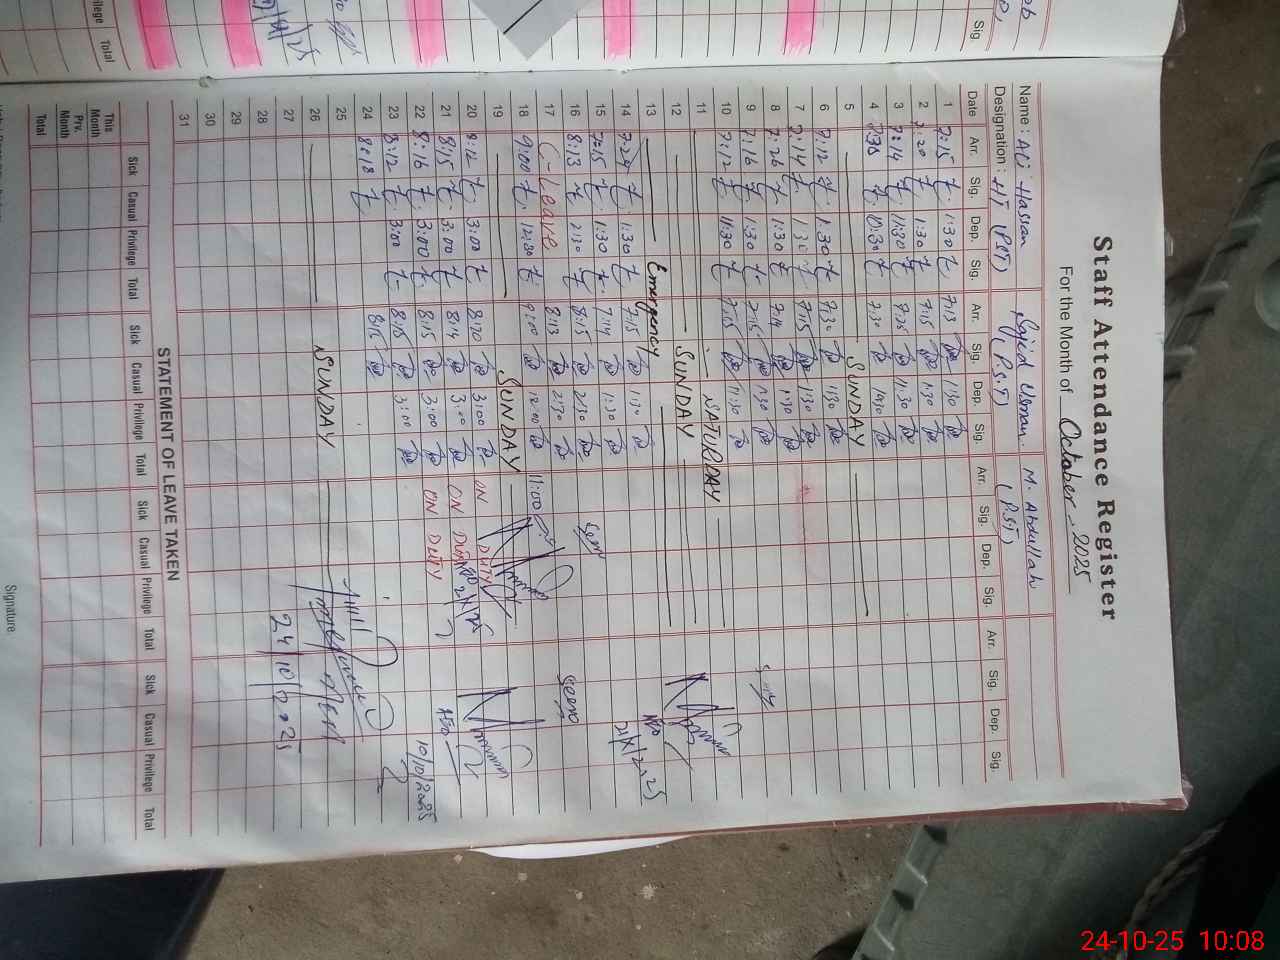 Staff Attendance Register
For the Month of October - 2025
Name : Ali Hassan Sajid Usman M. Abdullah
Designation : HT (PST) (P.S.T) (P.ST)
Date Arr. Sig. Dep. Sig. Arr. Sig. Dep. Sig. Arr. Sig. Dep. Sig. Arr. Sig. Dep. Sig.
1 7:15 1:30 7:13 1:30
2 7:20 1:30 7:15 1:30
3 7:14 11:30 7:25 11:30
4 7:30 10:30 7:30 10:30
5 SUNDAY
6 7:12 1:30 7:30 1:30
7 7:14 1:30 7:15 1:30
8 7:26 1:30 7:14 1:30
9 7:16 1:30 7:15 1:30
10 7:12 11:30 7:15 11:30
11 SATURDAY
12 SUNDAY
13 Emergency
14 7:24 1:30 7:15 1:30
15 7:15 1:30 7:14 1:30
16 8:13 2:30 8:15 2:30 Seen
17 C-Leave 8:13 2:30 Seen
18 9:00 12:30 9:00 12:00 11:00
19 SUNDAY
20 8:12 3:00 8:20 3:00 ON DUTY
21 8:15 3:00 8:14 3:00 ON DUTY
22 8:16 3:00 8:15 3:00 ON DUTY 10/10/2025
23 8:12 3:00 8:15 3:00
24 8:18 8:15
25
26 SUNDAY
27
28 24/10/2025
29
30
31
STATEMENT OF LEAVE TAKEN
Sick Casual Privilege Total Sick Casual Privilege Total Sick Casual Privilege Total Sick Casual Privilege Total
This Month
Prv. Month
Total
Signature
24-10-25 10:08